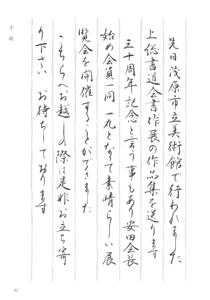 先日浅原市立美術館で行われました
上総書道会書作展の作品集を送ります
三十周年記念と言う事もあり安田会長
始め会員一同一丸となって素晴らしい展
覧会を開催することができました
こちらへお越しの際は是非お立ち寄
り下さい お待ちしております
手紙